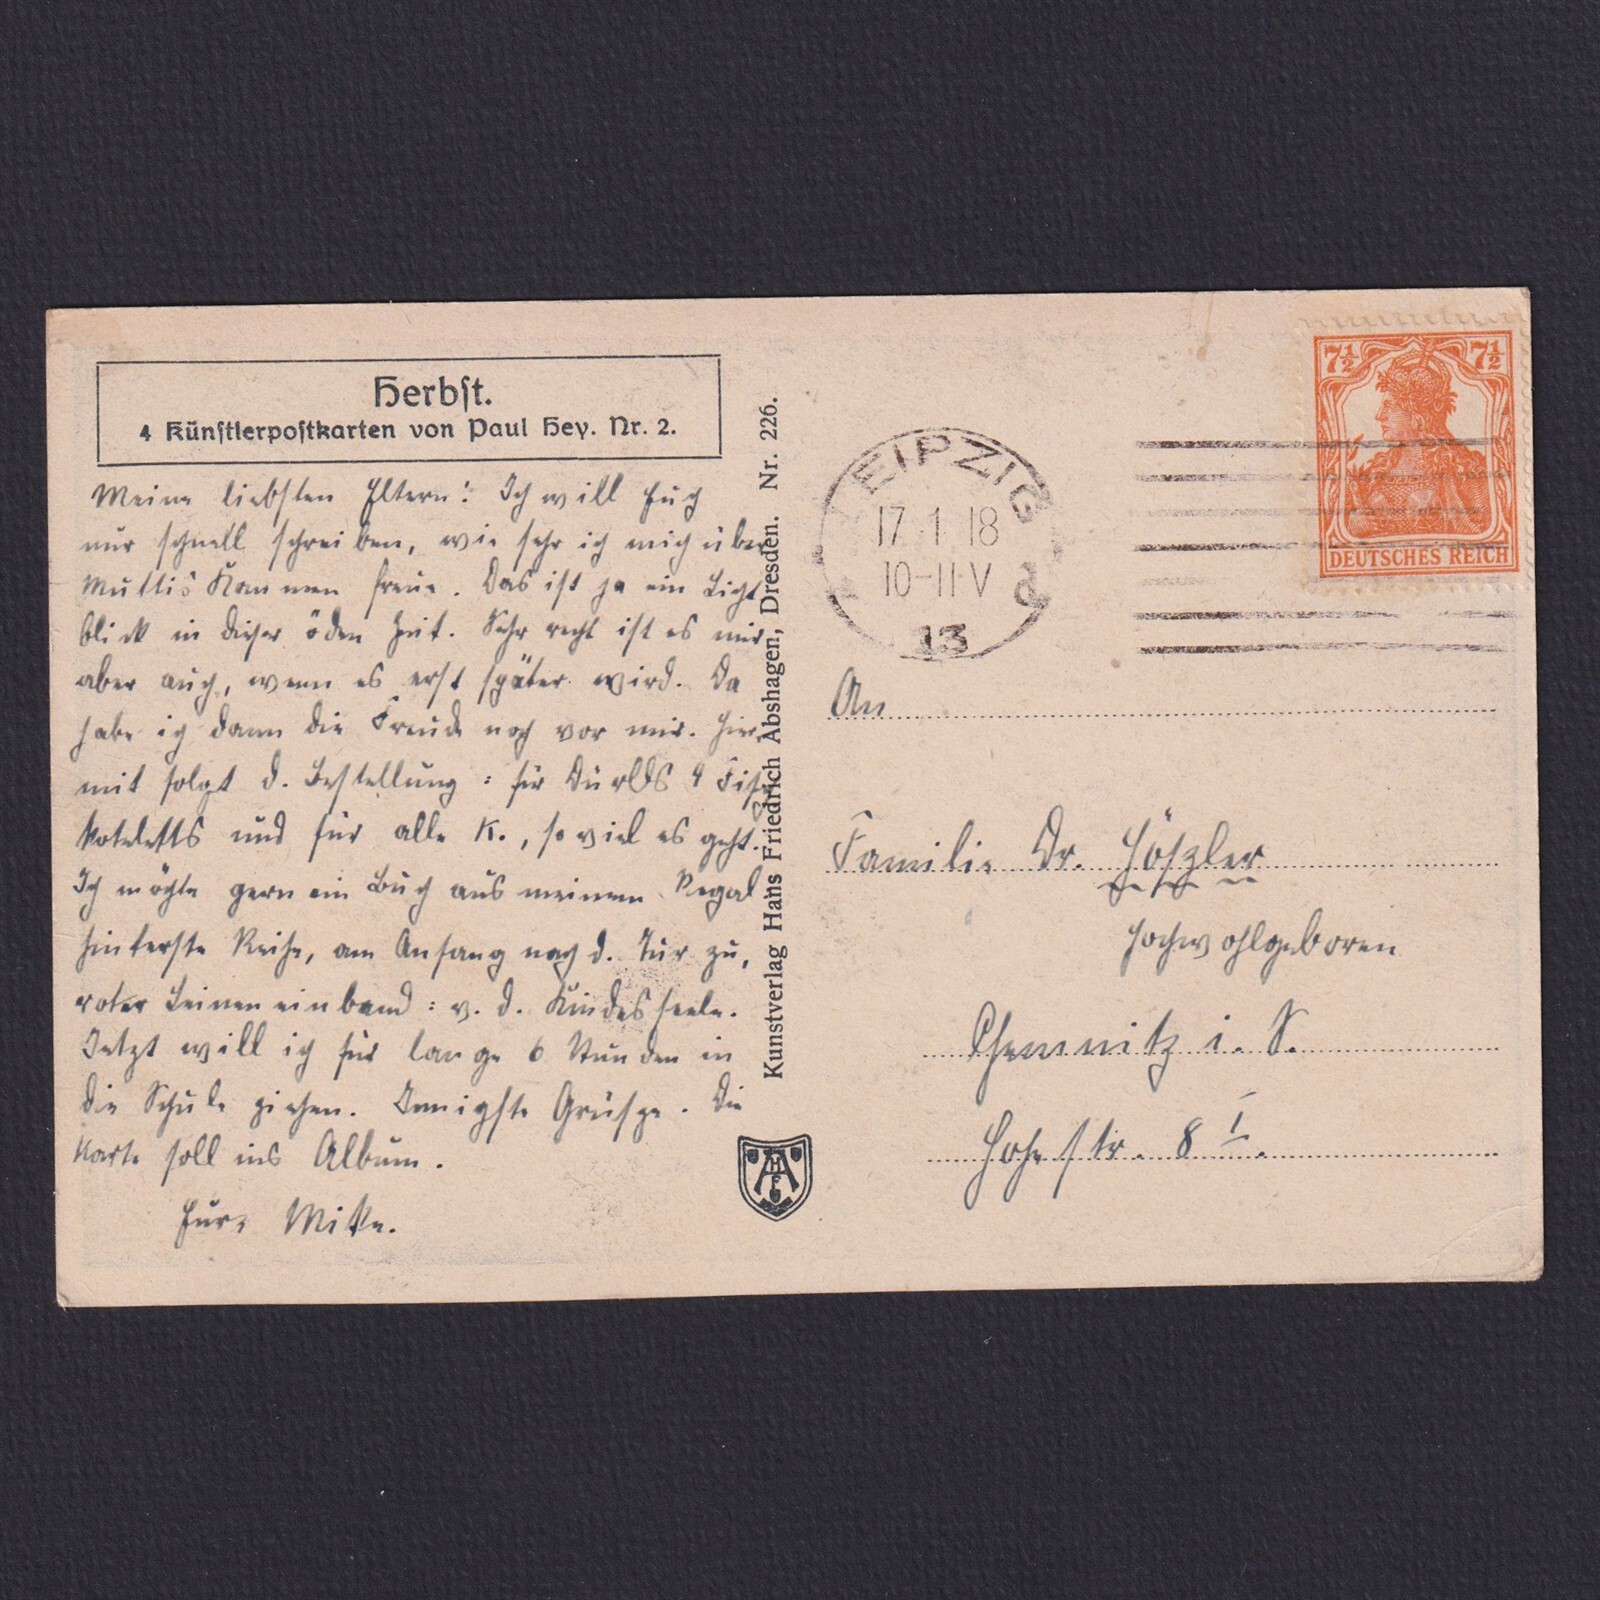 Herbst.
4 Künstlerpostkarten von Paul Hey. Nr. 2.
Meine liebsten Eltern! Ich will Euch
nur schnell schreiben, wie sehr ich mich über
Muttis Kommen freue. Das ist ja ein Licht
blick in dieser öden Zeit. Sehr recht ist es mir
aber auch, wenn es erst später wird. Da
habe ich dann die Freude noch vor mir. Hier
mit folgt d. Bestellung: für 4 Fisch
koteletts und für alle K., so viel es geht.
Ich möchte gern ein Buch aus meinem Regal
hinterste Reihe, am Anfang nach d. Tür zu,
roter Leineneinband: v. d. Kindesseele.
Jetzt will ich für lange 6 Stunden in
die Schule ziehen. Innigste Grüsze. Die
Karte soll ins Album.
Eure
Kunstverlag Hans Friedrich Abshagen, Dresden. Nr. 226.
LEIPZIG
17.1.18
10-11V
d
13
7½ 7½
DEUTSCHES REICH
An
Familie Dr.
Hochwohlgeboren
Chemnitz i. S.
Hohestr. 8 I.